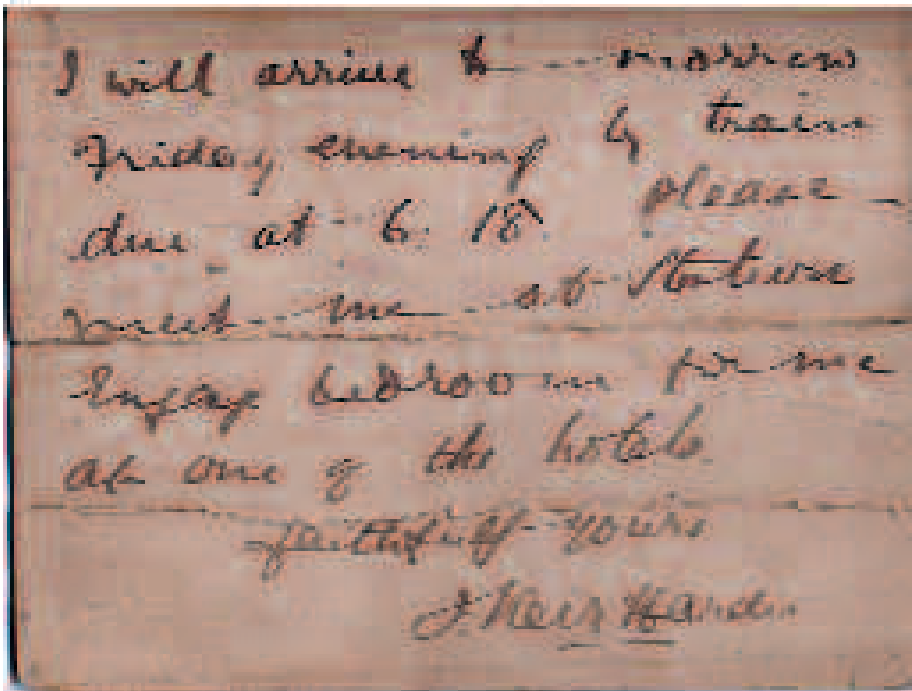 I will arrive to-morrow
Friday evening by train
due at 6.18. please
meet me at Station
Engage bedroom for me
at one of the hotels
faithfully yours
J. Keir Hardie